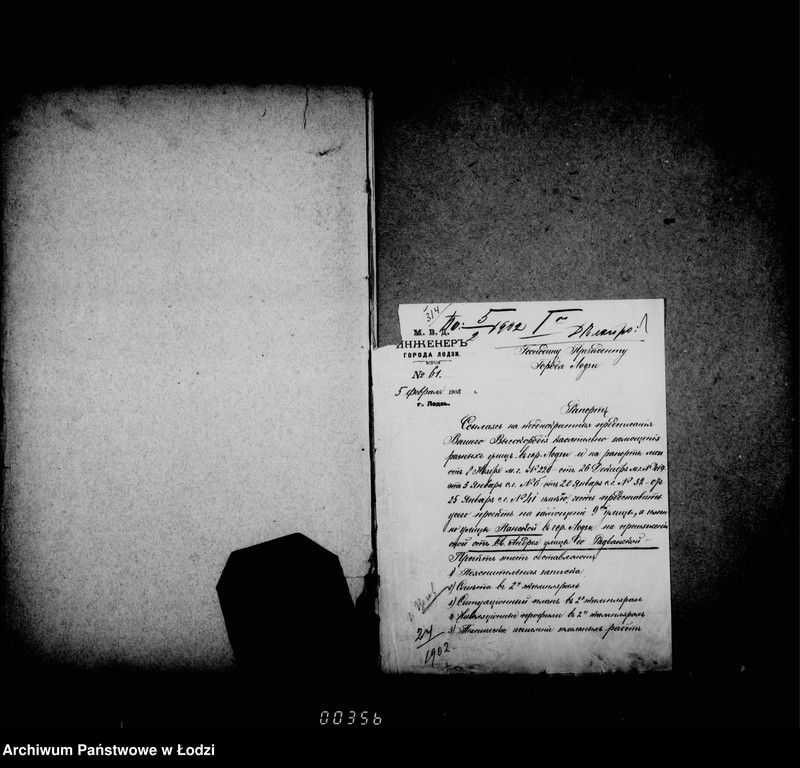 314
5/2 1902 I
М. В. Д.
ИНЖЕНЕРЪ
ГОРОДА ЛОДЗИ.
№ 61.
5 февраля 1902 г.
г. Лодзь.
Господину Президенту
Города Лодзи
Рапортъ
Ссылаясь на неоднократныя предписанія
Вашего Высокородія касательно замощенія
разныхъ улицъ въ гор. Лодзи и на рапорты мои
отъ 8 Ноября м.г. № 226 отъ 26 Декабря м.г. №
отъ 3 Января с.г. № 6 отъ 20 Января с.г. № 32 и отъ
25 Января с.г. № 41 имѣю честь представить
проэктъ на замощеніе 9 улицы, а имен
но улицы Панской въ гор. Лодзи на протяженіи
отъ Св. Андрея улицы до Радванской
Проэктъ этотъ составляютъ
1) Пояснительная записка
2) Смѣта въ 2 экземплярахъ
3) Ситуаціонный планъ въ 2 экземплярахъ
4) Нивеляціонный профили въ 2 экземплярахъ
5) Техническія условія земляныхъ работъ
24
1902
00356
Archiwum Państwowe w Łodzi